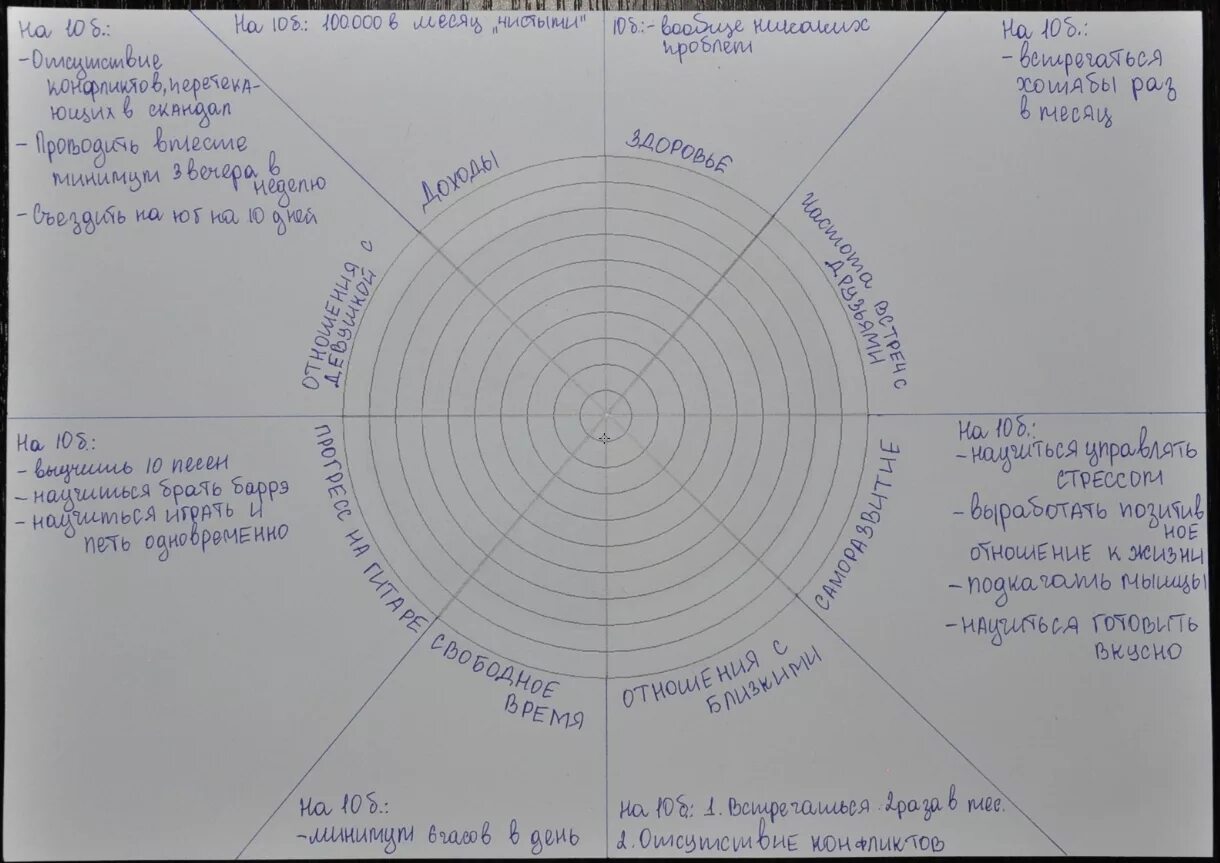 На 10б.:
-Отсутствие
конфликтов, перетека-
ющих в скандал
- Проводить вместе
минимум 3 вечера в
неделю
- Съездить на юг на 10 дней
На 10б: 100000 в месяц „чистыми"
10б:- вообще никаких
проблем
На 10б.:
- встречаться
хотябы раз
в месяц
ДОХОДЫ
ЗДОРОВЬЕ
ЧАСТОТА ВСТРЕЧ С
ДРУЗЬЯМИ
ОТНОШЕНИЯ С
ДЕВУШКОЙ
На 10б.:
- выучить 10 песен
- научиться брать баррэ
- научиться играть и
петь одновременно
ПРОГРЕСС НА ГИТАРЕ
САМОРАЗВИТИЕ
На 10б.:
-научиться управлять
стрессом
- выработать позитив
ное
отношение к жизни
- подкачать мышцы
-научиться готовить
вкусно
СВОБОДНОЕ
ВРЕМЯ
ОТНОШЕНИЯ С
БЛИЗКИМИ
На 10б.:
-минимум 6 часов в день
На 10б: 1. Встречаться 2 раза в мес.
2. Отсутствие конфликтов